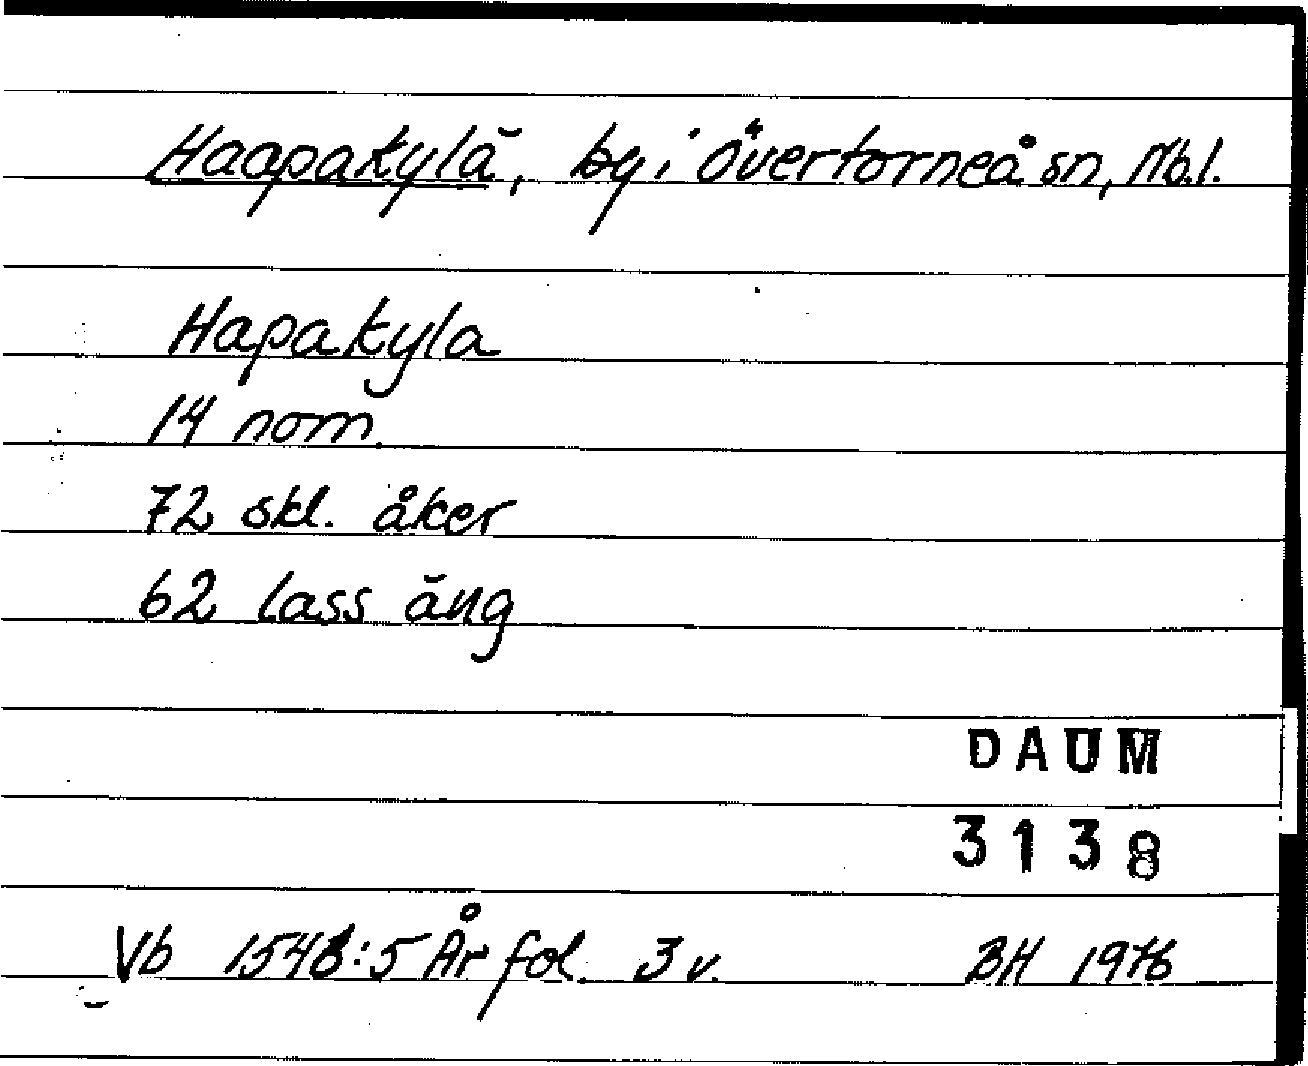 Haapakylä, by i Övertorneå sn, Nb.l.
Hapakyla
14 nom.
72 skl. åker
62 lass äng
DAUM
3138
Vb 1548:5 År fol. 3 v. BH 1976